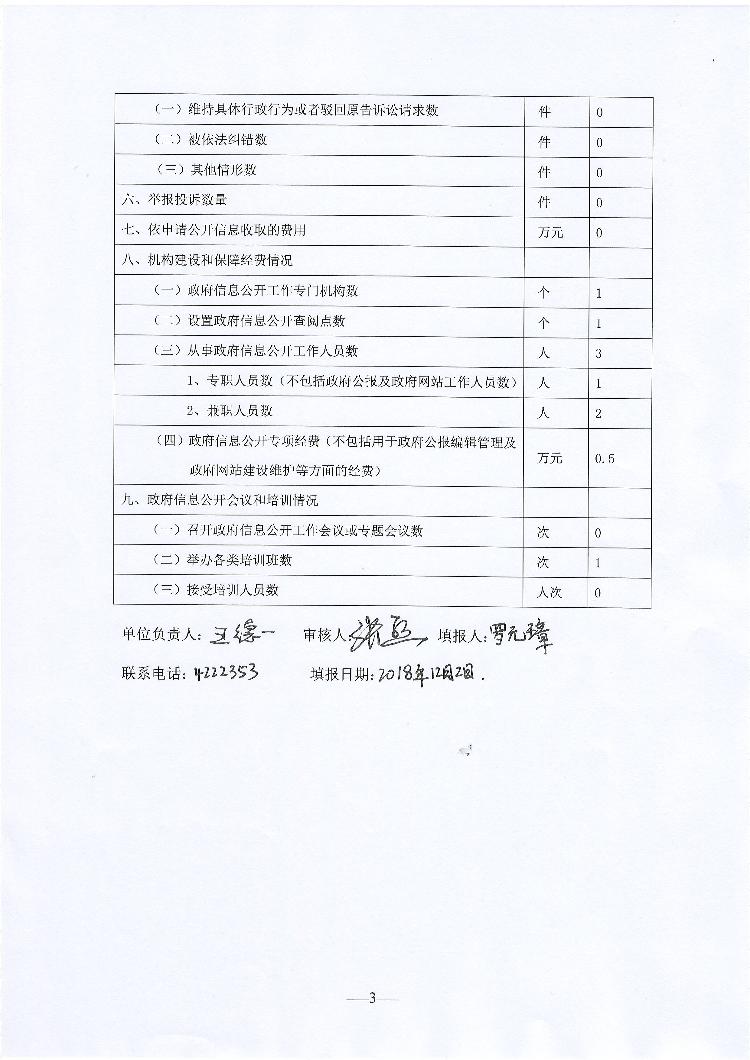 （一）维持具体行政行为或者驳回原告诉讼请求数 件 0
（二）被依法纠错数 件 0
（三）其他情形数 件 0
六、举报投诉数量 件 0
七、依申请公开信息收取的费用 万元 0
八、机构建设和保障经费情况
（一）政府信息公开工作专门机构数 个 1
（二）设置政府信息公开查阅点数 个 1
（三）从事政府信息公开工作人员数 人 3
1、专职人员数（不包括政府公报及政府网站工作人员数） 人 1
2、兼职人员数 人 2
（四）政府信息公开专项经费（不包括用于政府公报编辑管理及
政府网站建设维护等方面的经费） 万元 0.5
九、政府信息公开会议和培训情况
（一）召开政府信息公开工作会议或专题会议数 次 0
（二）举办各类培训班数 次 1
（三）接受培训人员数 人次 0
单位负责人：王德一 审核人： 填报人：罗元璋
联系电话：4222353 填报日期：2018年12月2日.
—3—